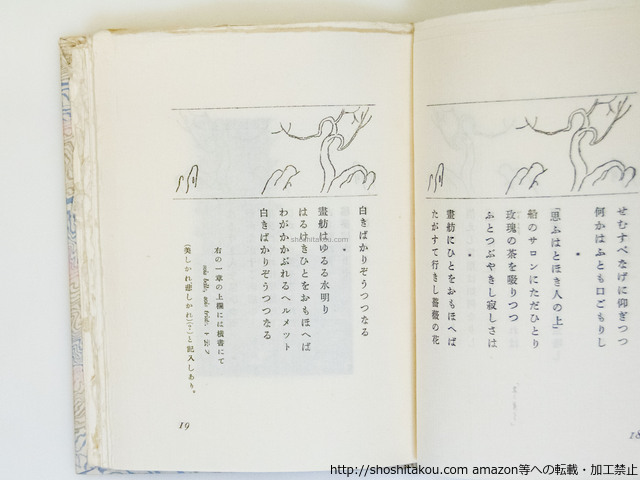 せむすべなげに仰ぎつつ
何かはふとも口ごもりし
「思ふはとほき人の上」
船のサロンにただひとり
玫瑰の茶を啜りつつ
ふとつぶやきし寂しさは
畫舫にひとをおもほへば
たがすて行きし薔薇の花
18
白きばかりぞうつつなる
畫舫はゆるる水明り
はるけきひとをおもほへば
わがかかぶれるヘルメット
白きばかりぞうつつなる
右の一章の上欄には横書にて
(美しかれ悲しかれ)(?)と記入しあり。
19
shoshitakou.com
http://shoshitakou.com amazon等への転載・加工禁止